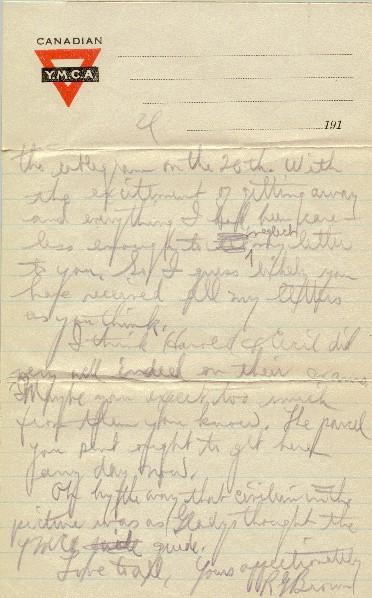 CANADIAN
Y.M.C.A.
191
4
the telegram on the 20th. With
the excitement of getting away
and everything I had been care-
less enough to neglect my letter
to you. So I guess likely you
have received all my letters
as you think.
I think Harold & Cecil did
very well indeed on their exams.
Maybe you expect too much
from them you know. The parcel
you sent ought to get here
any day now.
Oh by the way that civilian in the
picture was as Gladys thought the
YMCA guide.
Love to all, Yours affectionately
R G Brown